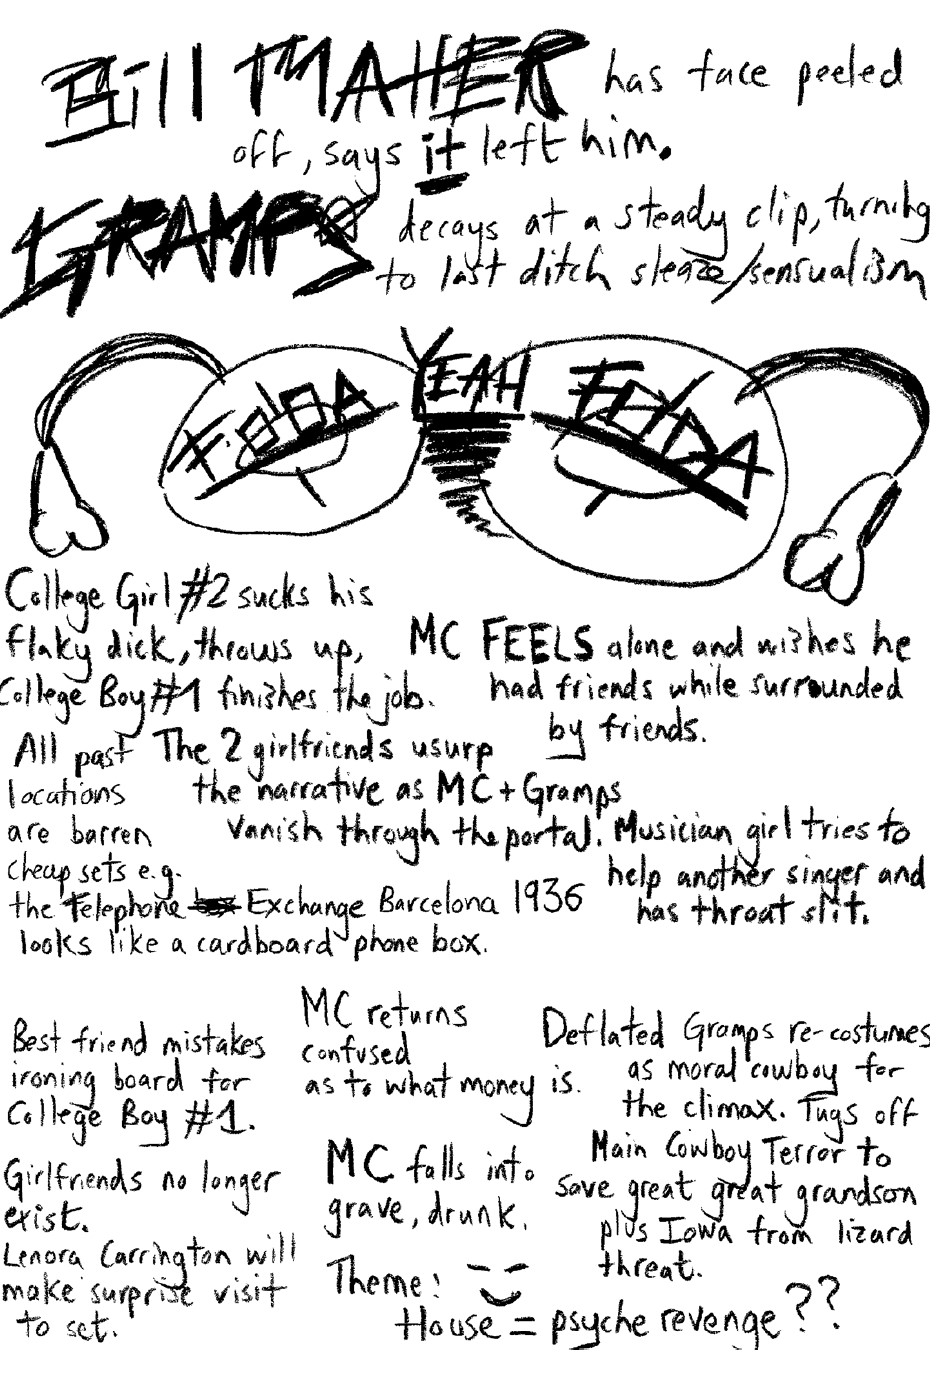 Bill MAHER has face peeled
off, says it left him.
GRAMPS decays at a steady clip, turning
to last ditch sleaze/sensualism
YEAH
College Girl #2 sucks his
flaky dick, throws up,
College Boy #1 finishes the job.
MC FEELS alone and wishes he
had friends while surrounded
by friends.
All past
locations
are barren
cheap sets e.g.
the Telephone Exchange Barcelona 1936
looks like a cardboard phone box.
The 2 girlfriends usurp
the narrative as MC + Gramps
vanish through the portal.
Musician girl tries to
help another singer and
has throat slit.
Best friend mistakes
ironing board for
College Boy #1.
MC returns
confused
as to what money is.
Deflated Gramps re-costumes
as moral cowboy for
the climax. Tugs off
Main Cowboy Terror to
save great great grandson
plus Iowa from lizard
threat.
Girlfriends no longer
exist.
MC falls into
grave, drunk.
Lenora Carrington will
make surprise visit
to set.
Theme:
House = psyche revenge??